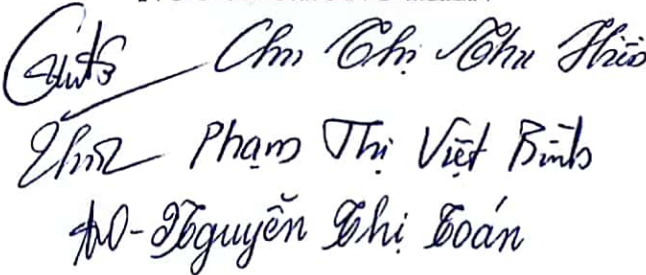 Chu Thị Thu Hiền
Phạm Thị Việt Bình
Nguyễn Thị Toán